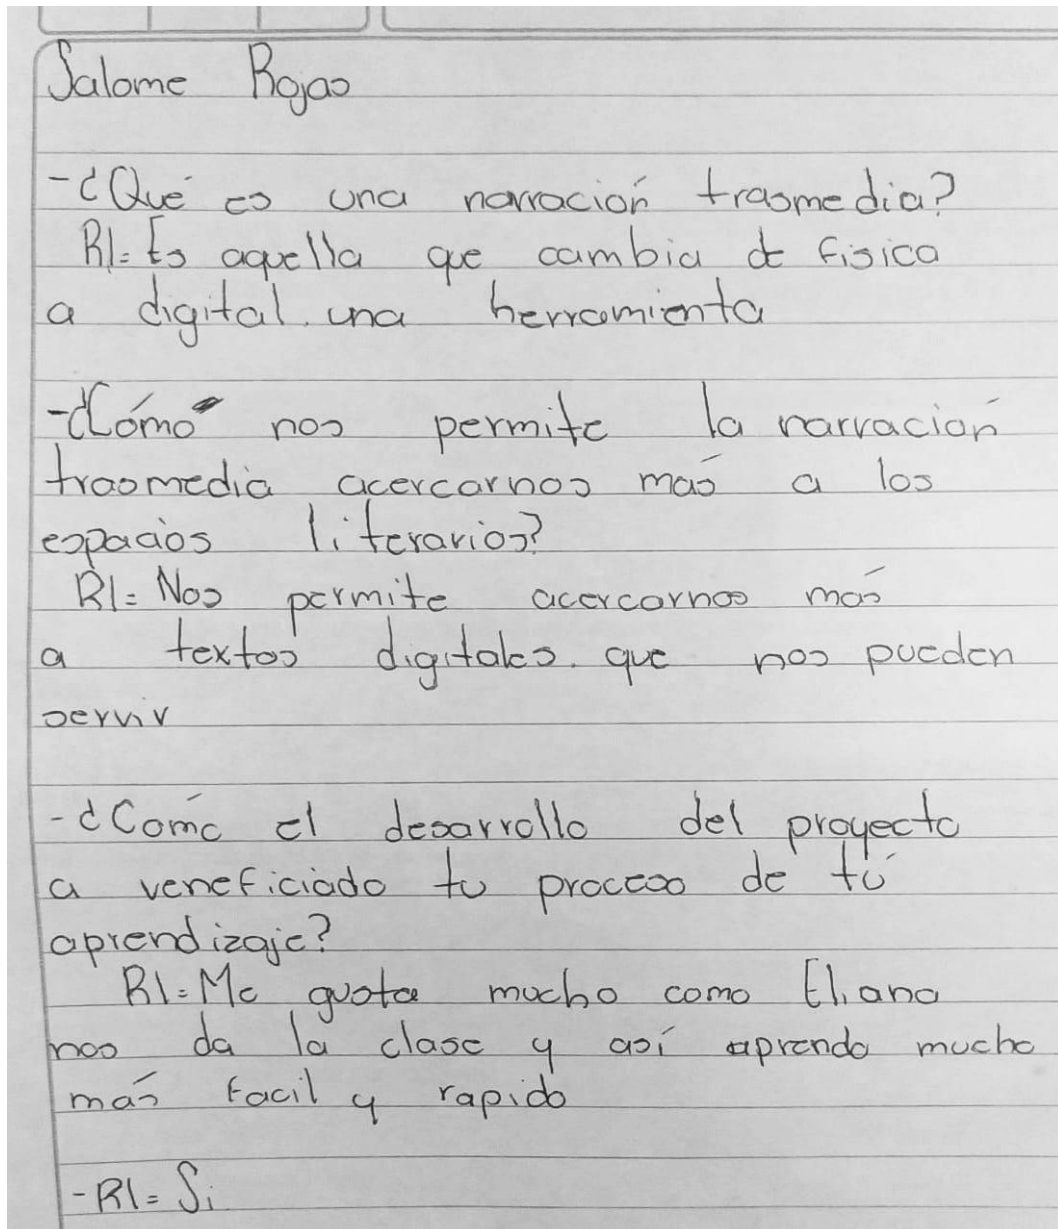 Salome Rojas
-¿Qué es una narración trasmedia?
Rl= Es aquella que cambia de fisica
a digital. una herramienta
-¿Cómo nos permite la narración
trasmedia acercarnos más a los
espacios literarios?
Rl= Nos permite acercarnos más
a textos digitales. que nos pueden
servir
-¿Cómo el desarrollo del proyecto
a veneficiado tu proceso de tú
aprendizaje?
Rl= Me gusta mucho como Eliana
nos da la clase y así aprendo mucho
más facil y rapido
-Rl= Si